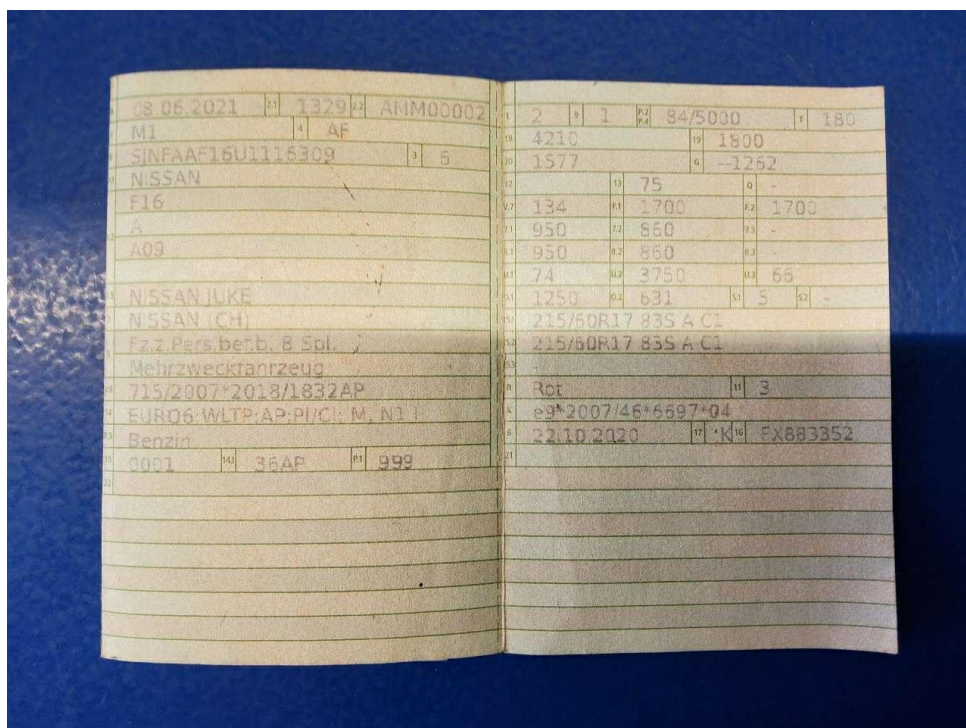 08.06.2021 2.1 1329 2.2 AMM00002
M1 4 AF
SJNFAAF16U1116309 3 6
NISSAN
F16
A
A09
NISSAN JUKE
NISSAN (CH)
Fz.z.Pers.bef.b. 8 Spl.
Mehrzweckfahrzeug
715/2007*2018/1832AP
EURO6;WLTP;AP;PI/CI; M, N1 I
Benzin
10 0001 14.1 36AP P.1 999
22
2 9 1 P.2 P.4 84/5000 T 180
18 4210 19 1800
20 1577 G -1262
12 13 75 Q -
V.7 134 F.1 1700 F.2 1700
7.1 950 7.2 860 7.3 -
8.1 950 8.2 860 8.3 -
U.1 74 U.2 3750 U.3 66
O.1 1250 O.2 631 S.1 5 S.2 -
215/60R17 83S A C1
215/60R17 83S A C1
-
R Rot 11 3
K e9*2007/46*6697*04
6 22.10.2020 17 K 16 FX883352
21